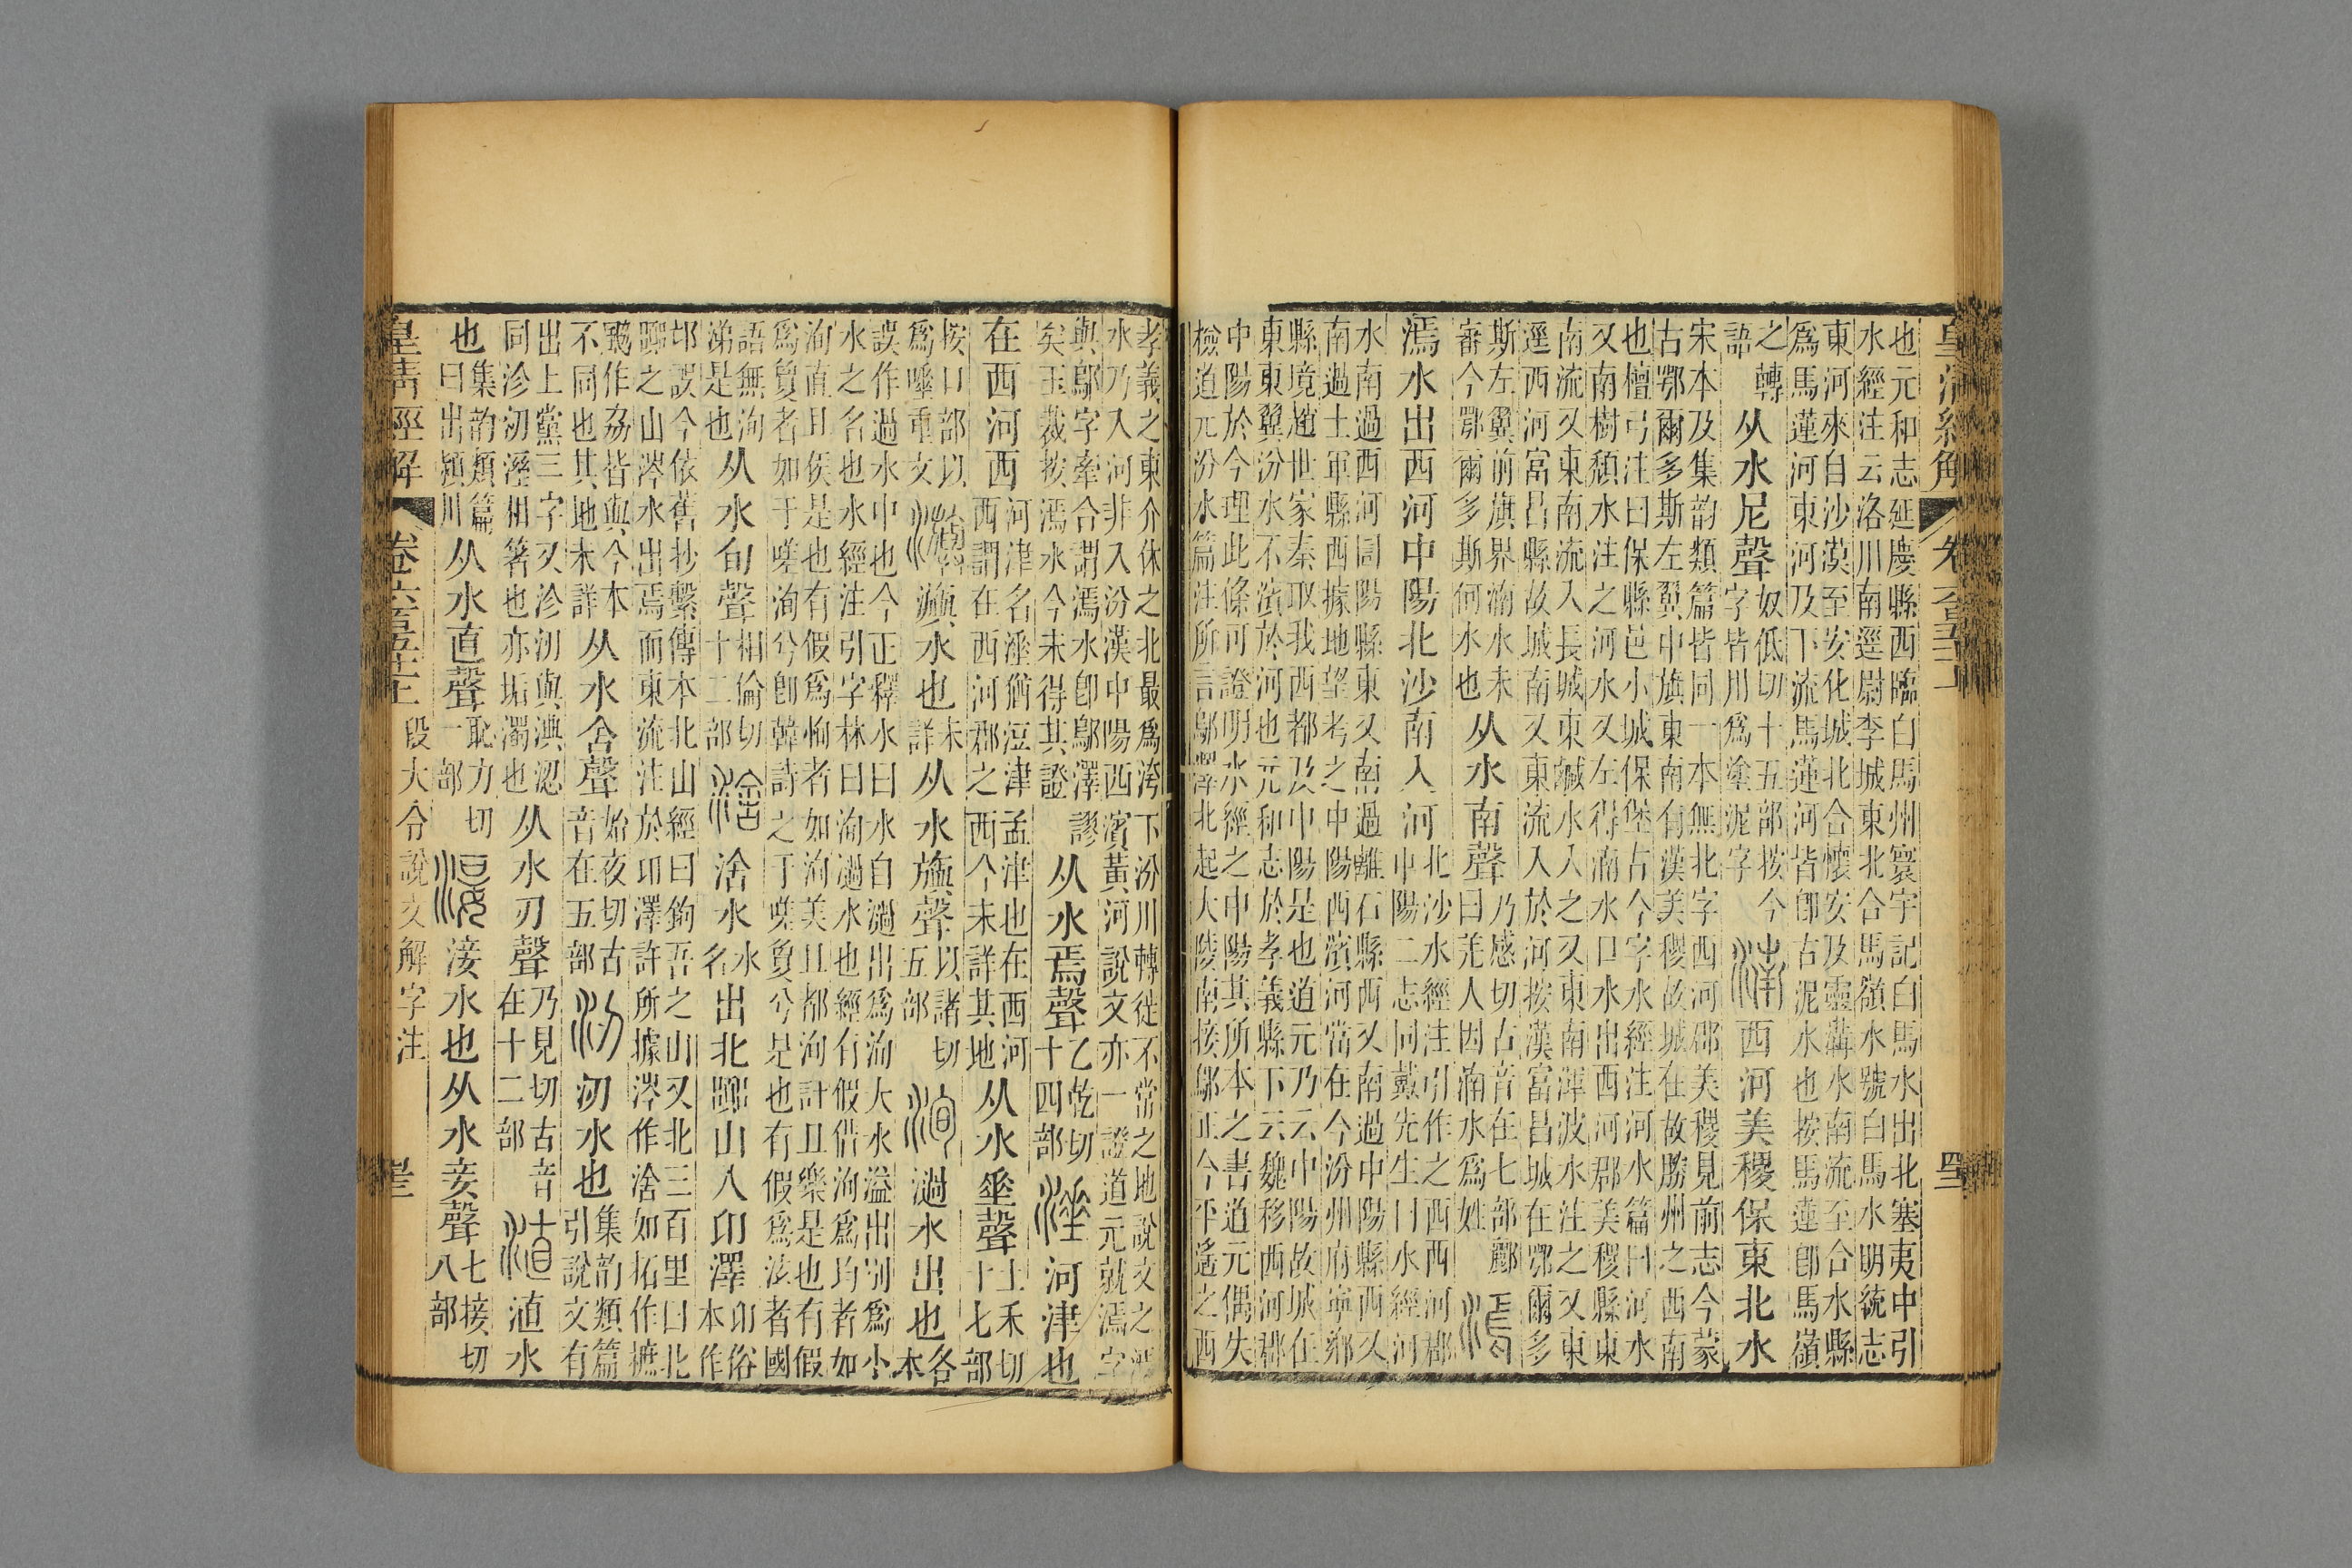 也元和志延慶縣西臨白馬州寰宇記白馬水出北塞夷中引
水經注云洛川南逕尉李城東北合馬嶺水號白馬水明統志
東河來自沙漠至安化城北合懷安及靈溝水南流至合水縣
爲馬蓮河東河及下流馬蓮河皆卽古泥水也按馬蓮卽馬嶺
之轉語从水尼聲奴低切十五部按今字皆川爲塗泥字湳西河美稷保東北水
宋本及集韵類篇皆同一本無北字西河郡美稷見前志今蒙
古鄂爾多斯左翼中旗東南有漢美稷故城在故勝州之西南
也檀弓注曰保縣邑小城保堡古今字水經注河水篇曰河水
又南樹頹水注之河水又左得湳水口水出西河郡美稷縣東
南流又東南流入長城東鹹水入之又東南渾波水注之又東
逕西河富昌縣故城南又東流入於河按漢富昌城在鄂爾多
斯左翼前旗界湳水未審今鄂爾多斯何水也从水南聲乃感切古音在七部酈曰羌人因湳水爲姓漹
漹水出西河中陽北沙南入河北沙水經注引作之西西河郡中陽二志同戴先生曰水經河
水南過西河圁陽縣東又南過離石縣西又南過中陽縣西又
南過土軍縣西據地望考之中陽西濱河當在今汾州府寧鄉
縣境趙世家秦取我西都及中陽是也道元乃云中陽故城在
東東翼汾水不濱於河也元和志於孝義縣下云魏移西河郡
中陽於今理此條可證明水經之中陽其所本之書道元偶失
檢道元汾水篇注所言鄔澤北起大陵南接鄔正今平遙之西
孝義之東介休之北最爲洿下汾川轉徙不常之地說文之漹
水乃入河非入汾漢中陽西濱黃河說文亦一證道元就漹字
與鄔字牽合謂漹水卽鄔澤謬矣玉裁按漹水今未得其證从水焉聲乙乾切十四部涶河津也
在西河西河津名涶猶洹津孟津也在西河西謂在西河郡之西今未詳其地从水垂聲土禾切十七部
按口部以爲唾重文㵀㵀水也未詳从水旟聲以諸切五部洵過水出也各本
誤作過水中也今正釋水曰水自過出爲洵大水溢出別爲小
水之名也水經注引字林曰洵過水也經有假借洵爲均者如
洵直且侯是也有假爲恂者如洵美且都洵訏且樂是也有假
爲夐者如于嗟洵兮卽韓詩之于嗟夐兮是也有假爲泫者國
語無洵涕是也从水旬聲相倫切十二部涻涻水水名出北嚻山入卭澤卭俗本作
邙誤今依舊抄繫傳本北山經曰鉤吾之山又北三百里曰北
嚻之山涔水出焉而東流注於卭澤許所據涔作涻如拓作摭
鶨作劦皆與今本不同也其地未詳从水舍聲始夜切古音在五部㲽㲽水也集韵類篇引說文有
出上黨三字又沴㲽與淟涊同沴㲽溼相箸也亦垢濁也从水刃聲乃見切古音在十二部淔淔水
也集韵類篇曰出潁川从水直聲恥力切一部淁淁水也从水妾聲七接切八部
皇清經解 段大令說文解字注